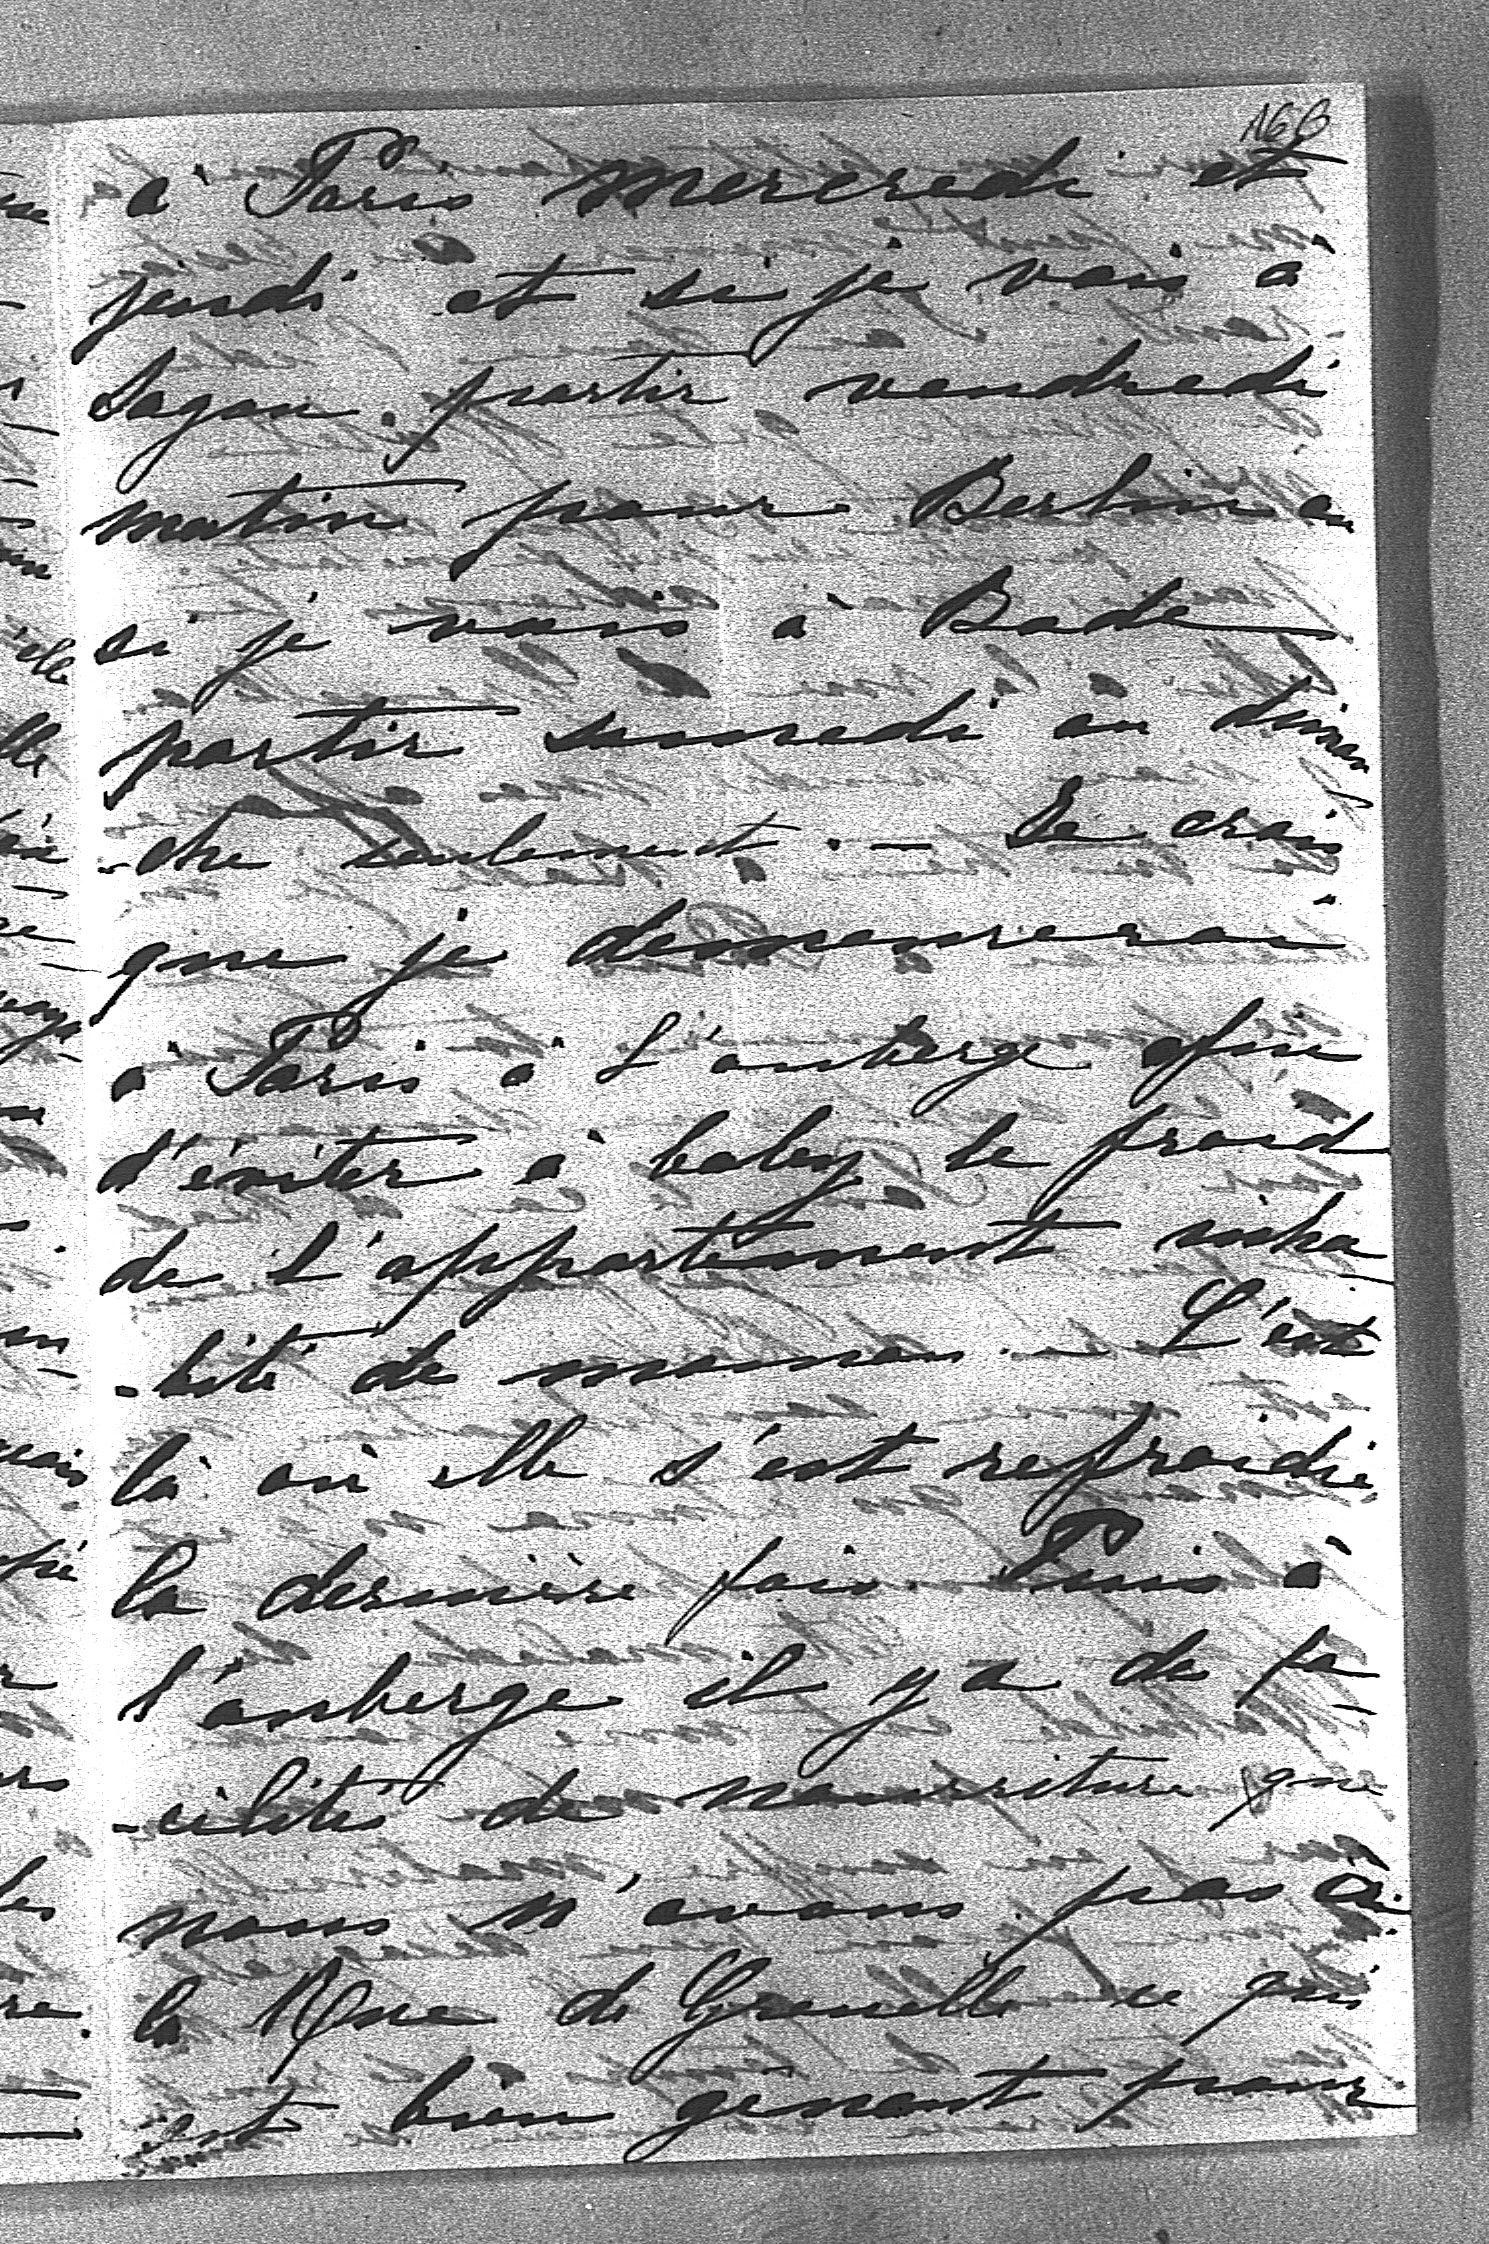 166
à Paris mercredi et
jeudi et si je vais à
Sagan partir vendredi
matin pour Berlin ou
si je vais à Bade
partir samedi ou diman
-che seulement. — Je crois
que je demeurerai
à Paris à l'auberge afin
d'éviter à baby le froid
de l'appartement inha
-bité de maman. C'est
là où elle s'est refroidie
la dernière fois. Puis à
l'auberge il y a de fa
-cilités de nourriture que
nous n'avons pas à
la Rue de Grenelle ce qui
est bien gênant pour